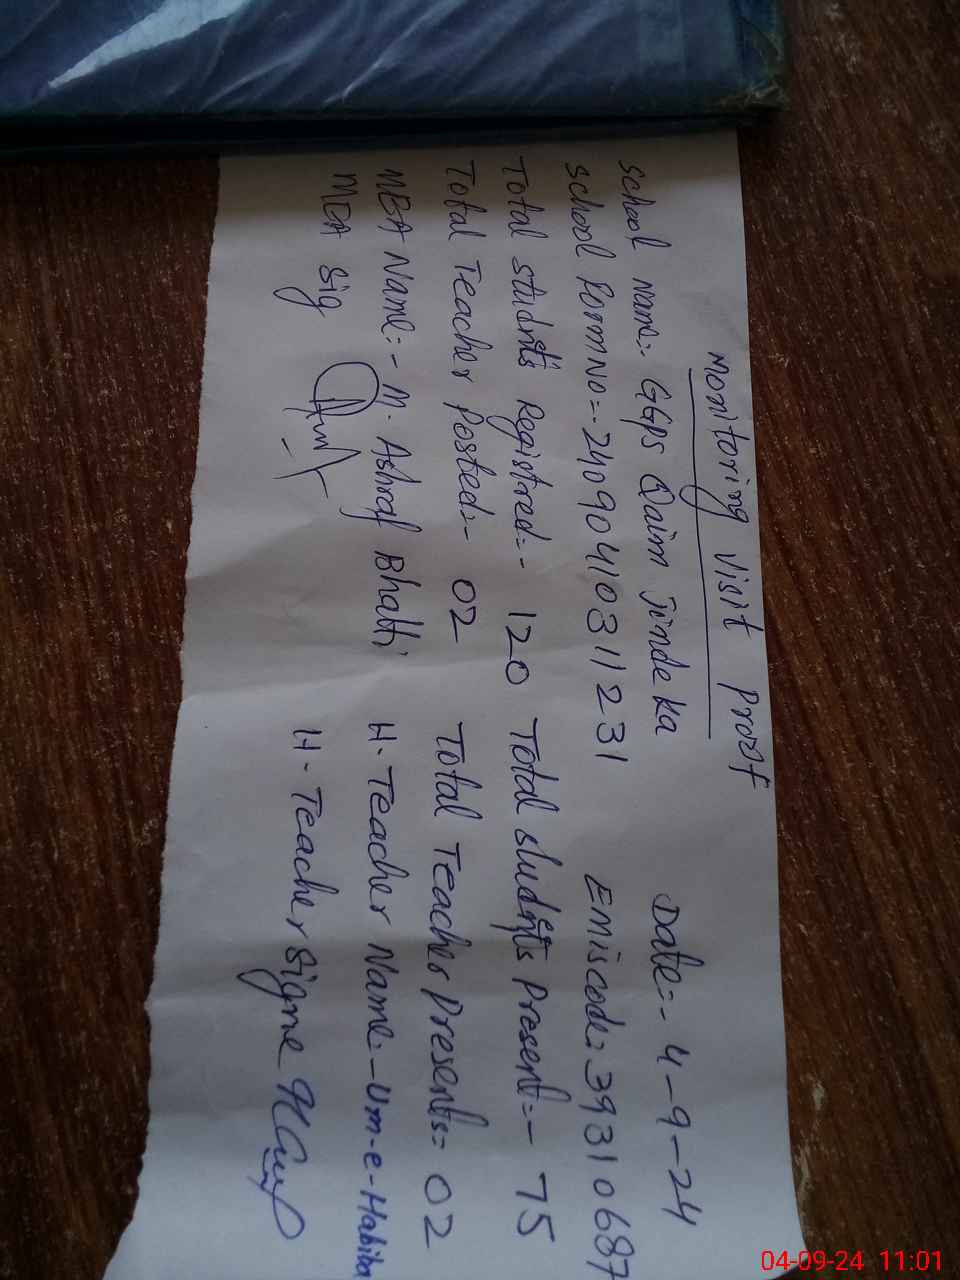 Monitoring Visit Proof
School Name:- GGPS Qaim Jindeka Date:- 4-9-24
School Form No:- 24090410311231 Emiscode: 39310687
Total Studnts Registred:- 120 Total Studnts Present:- 75
Total Teacher Posted:- 02 Total Teacher Presents:- 02
MEA Name:- M. Ashraf Bhatti H. Teacher Name:- Um-e-Habiba
MEA Sig H- Teacher Signe
04-09-24 11:01